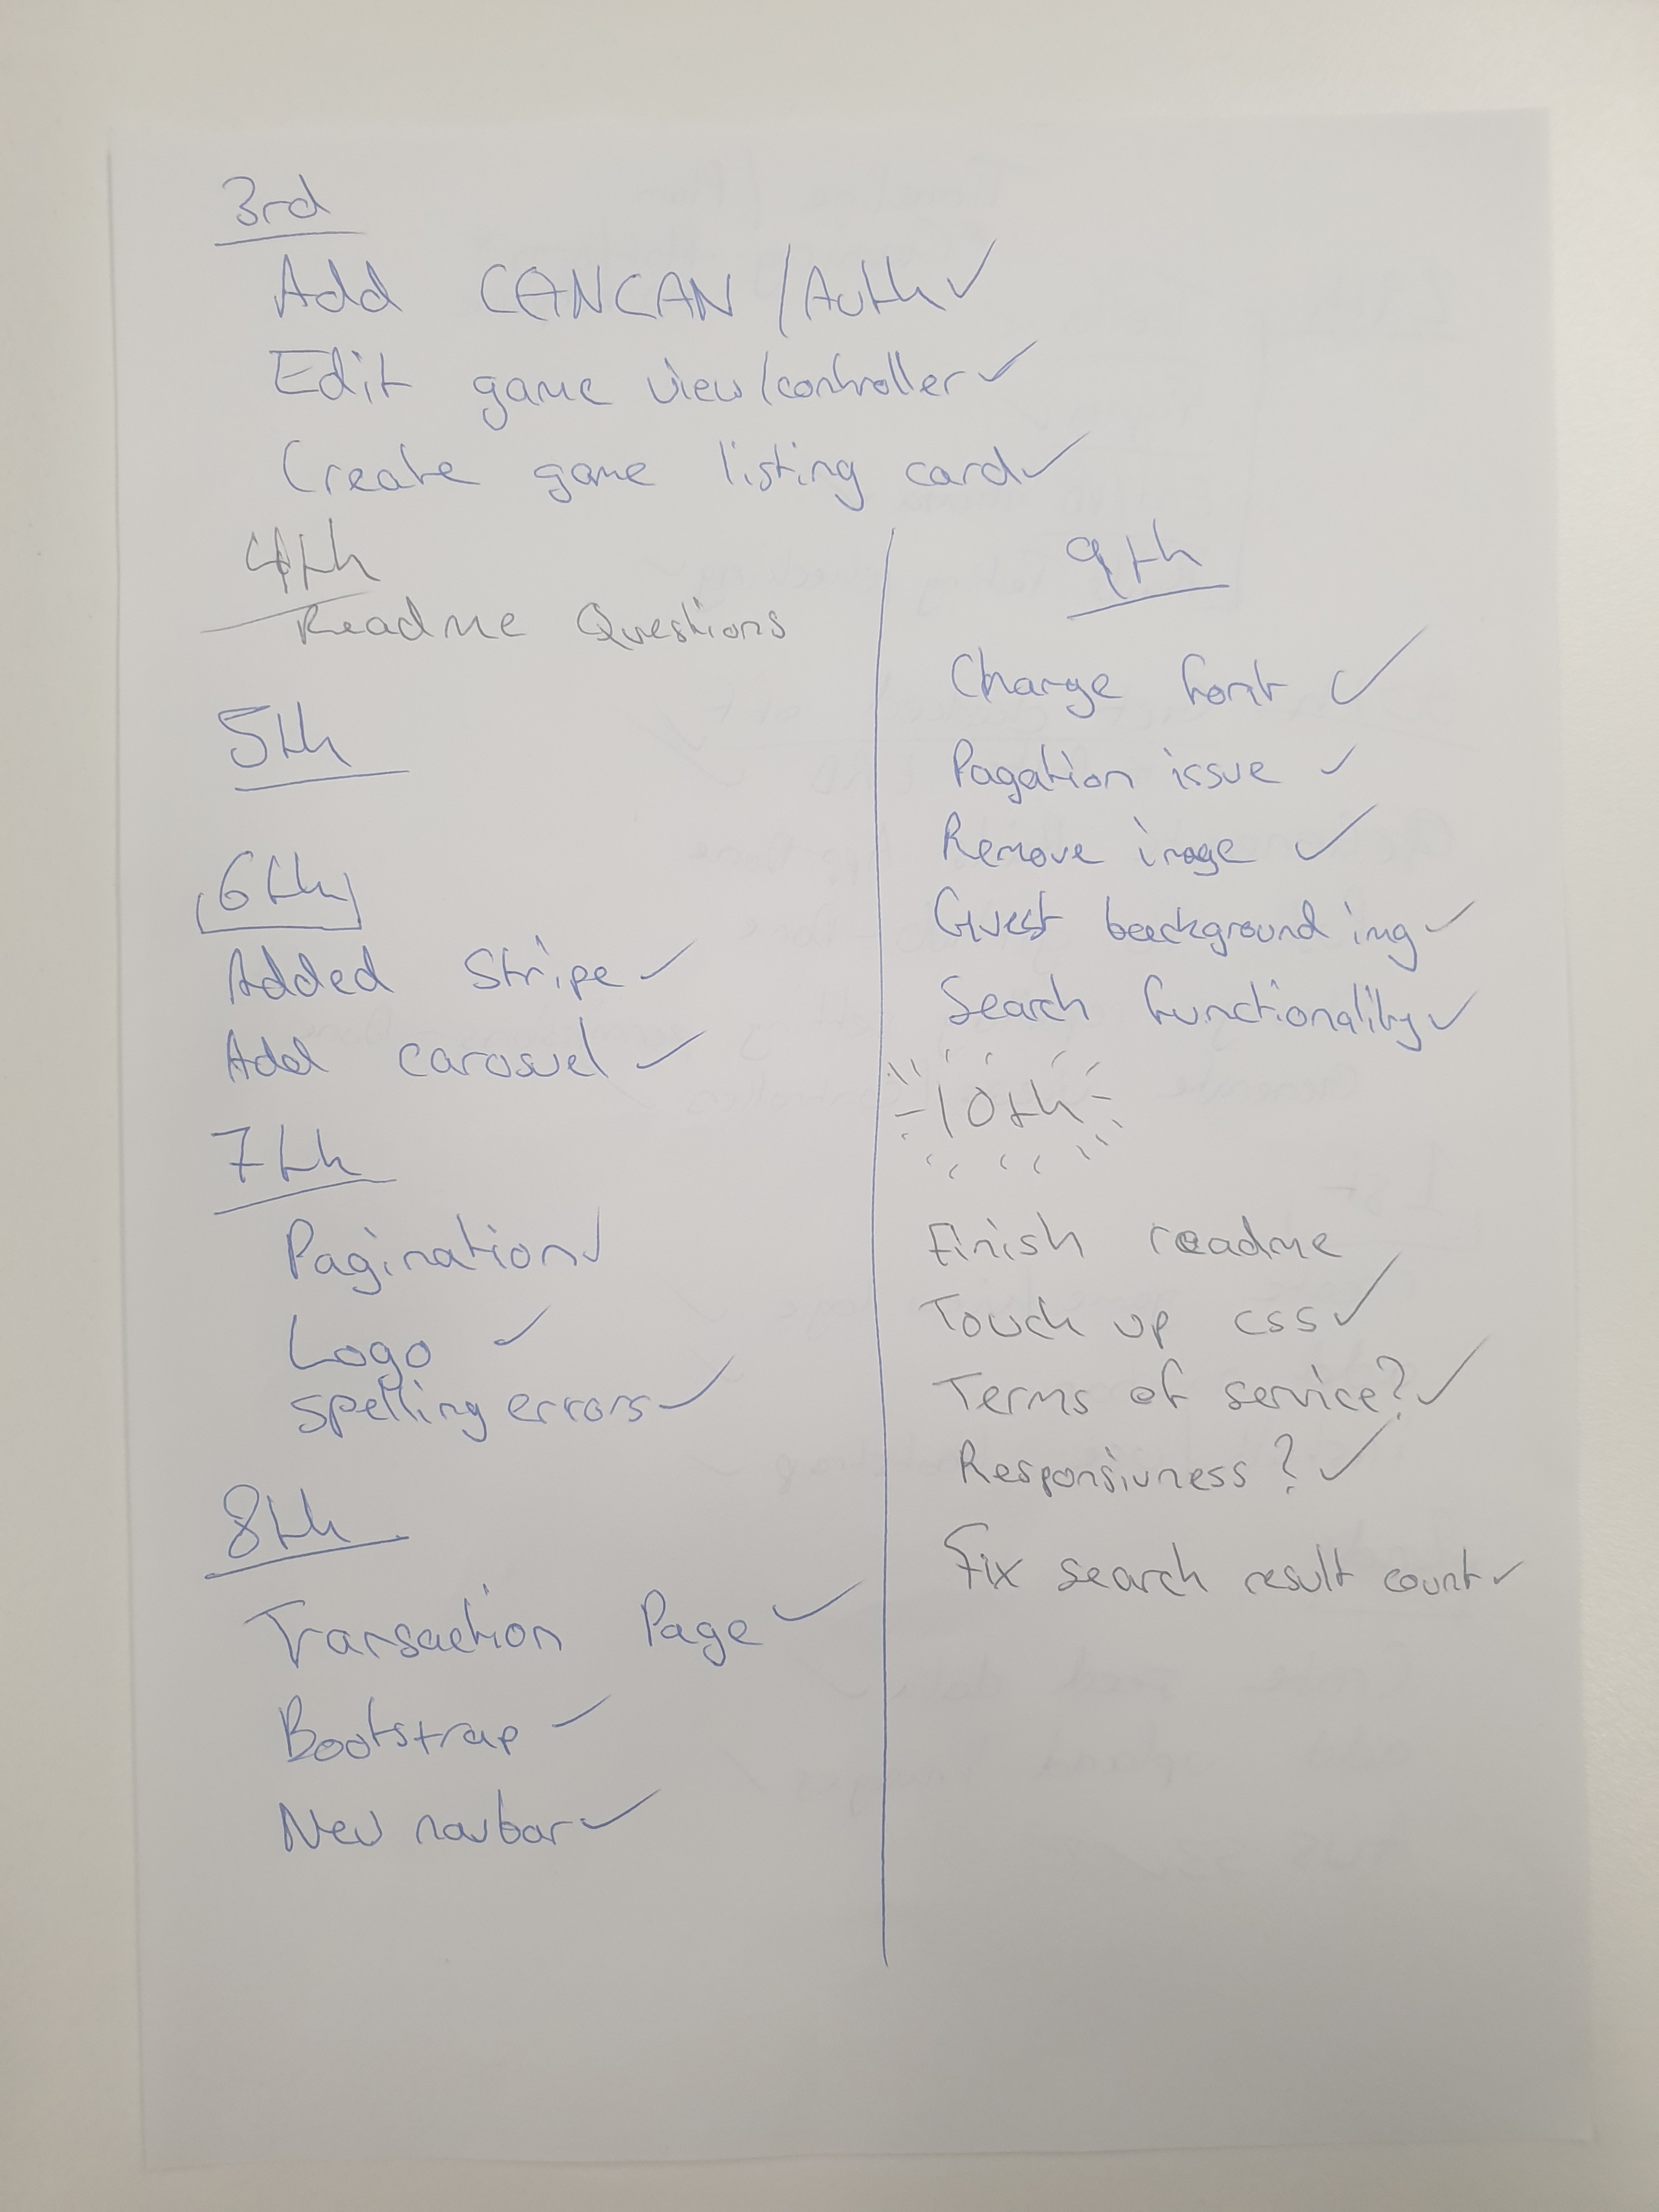 3rd
Add CANCAN /Auth ✓
Edit game view/controller ✓
Create game listing card ✓
4th
Readme Questions
5th
6th
Added Stripe ✓
Add carosuel ✓
7th
Pagination ✓
Logo ✓
spelling errors ✓
8th
Transaction Page ✓
Bootstrap ✓
New navbar ✓
9th
Change font ✓
Pagation issue ✓
Remove image ✓
Guest background img ✓
Search functionality ✓
10th
Finish readme
Touch up css ✓
Terms of service? ✓
Responsivness? ✓
Fix search result count ✓